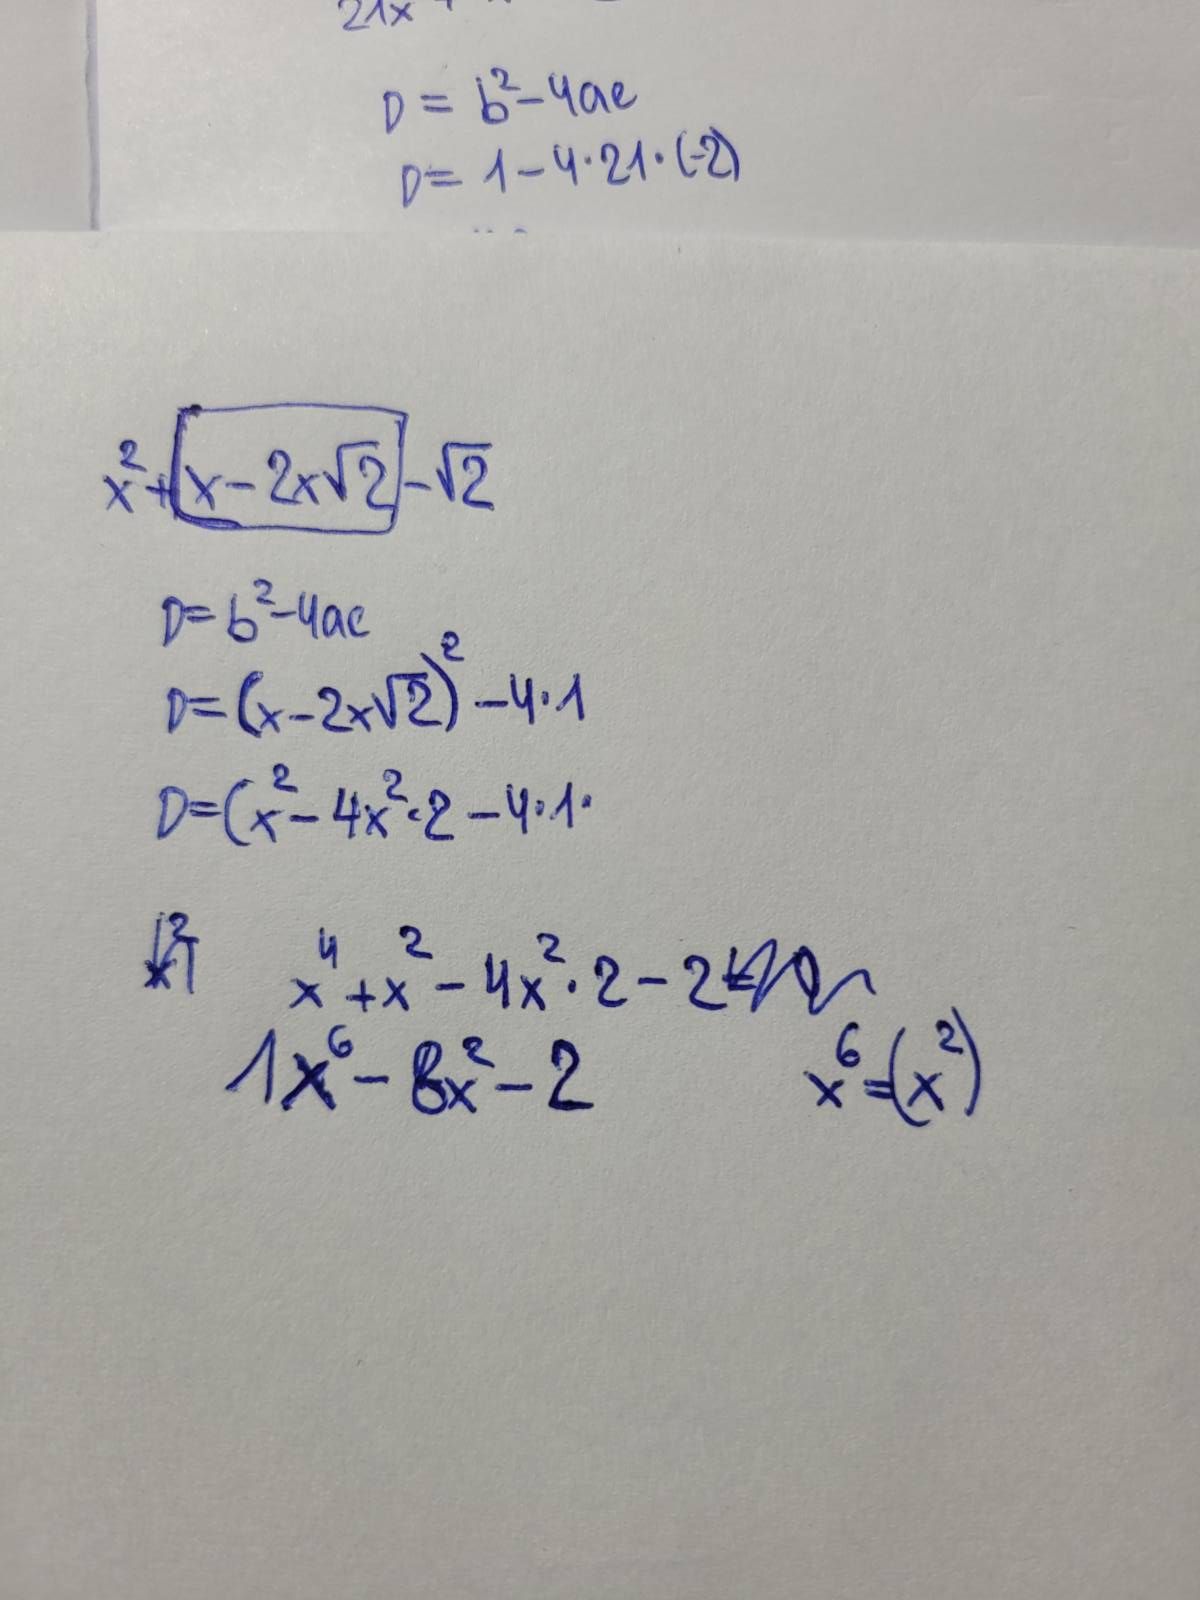 21x
D = b² - 4ac
D = 1 - 4·21·(-2)
x² + x - 2x√2 - √2
D = b² - 4ac
D = (x - 2x√2)² - 4·1
D = (x² - 4x²·2 - 4·1·
x⁴ + x² - 4x²·2 - 2
1x⁶ - 8x² - 2 x⁶ = (x²)